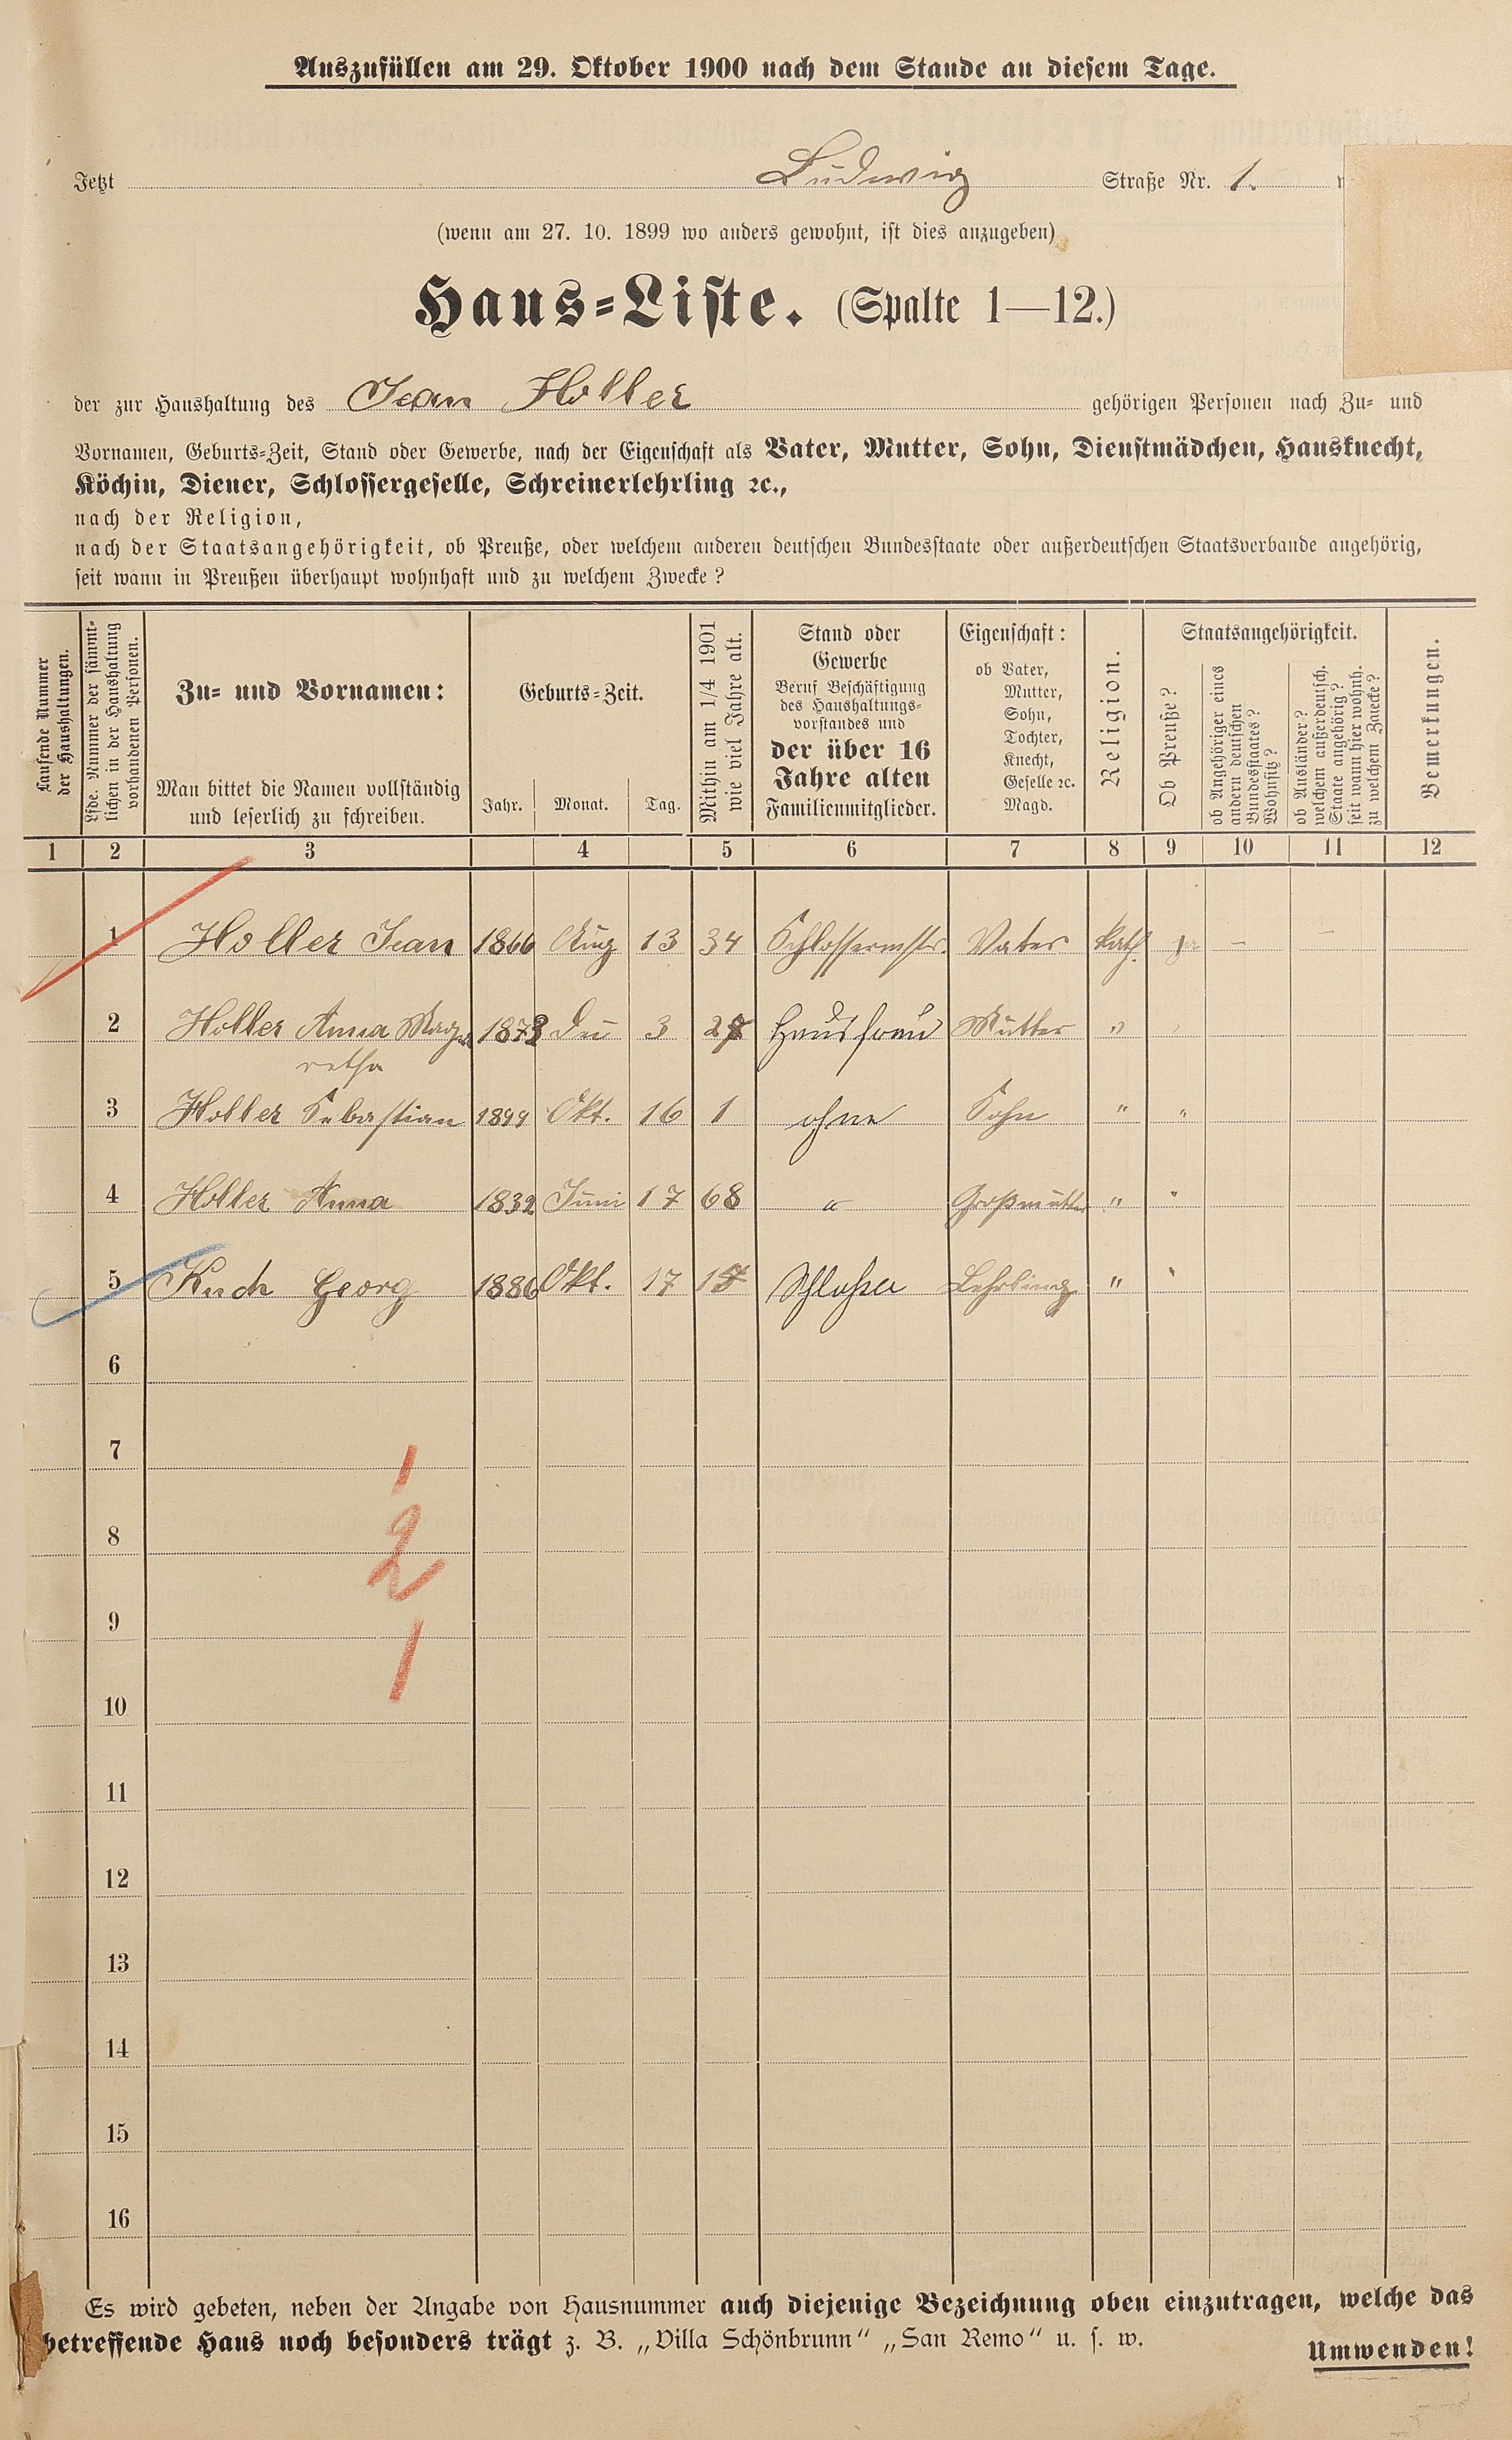 Auszufüllen am 29. Oktober 1900 nach dem Stande an diesem Tage.
Jetzt Ludwig Straße Nr. 1.
(wenn am 27. 10. 1899 wo anders gewohnt, ist dies anzugeben)
Haus-Liste. (Spalte 1—12.)
der zur Haushaltung des Jean Holler gehörigen Personen nach Zu- und
Vornamen, Geburts-Zeit, Stand oder Gewerbe, nach der Eigenschaft als Vater, Mutter, Sohn, Dienstmädchen, Hausknecht,
Köchin, Diener, Schlossergeselle, Schreinerlehrling ꝛc.,
nach der Religion,
nach der Staatsangehörigkeit, ob Preuße, oder welchem anderen deutschen Bundesstaate oder außerdeutschen Staatsverbande angehörig,
seit wann in Preußen überhaupt wohnhaft und zu welchem Zwecke?
Laufende Nummer
der Haushaltungen.
Lfde. Nummer der sämmt-
lichen in der Haushaltung
vorhandenen Personen.
Zu- und Vornamen:
Man bittet die Namen vollständig
und leserlich zu schreiben.
Geburts-Zeit.
Jahr. Monat. Tag.
Mithin am 1/4 1901
wie viel Jahre alt.
Stand oder
Gewerbe
Beruf Beschäftigung
des Haushaltungs-
vorstandes und
der über 16
Jahre alten
Familienmitglieder.
Eigenschaft:
ob Vater,
Mutter,
Sohn,
Tochter,
Knecht,
Geselle ꝛc.
Magd.
Religion.
Staatsangehörigkeit.
Ob Preuße?
ob Angehöriger eines
andern deutschen
Bundesstaates?
Wohnsitz?
ob Ausländer?
welchem außerdeutsch.
Staate angehörig?
seit wann hier wohnh.
zu welchem Zwecke?
Bemerkungen.
1 2 3 4 5 6 7 8 9 10 11 12
1 Holler Jean 1866 Aug 13 34 Schlossermstr. Vater kath. ja — —
2 Holler Anna Marga 1873 3 27 Hausfrau Mutter "
retha
3 Holler Sebastian 1899 Okt. 16 1 ohne Sohn " "
4 Holler Anna 1832 Juni 17 68 " Großmutter " "
5 Kuch Georg 1886 Okt. 17 Schlosser Lehrling " "
6
7
1
8
2
9
1
10
11
12
13
14
15
16
Es wird gebeten, neben der Angabe von Hausnummer auch diejenige Bezeichnung oben einzutragen, welche das
betreffende Haus noch besonders trägt z. B. „Villa Schönbrunn" „San Remo" u. s. w.
Umwenden!